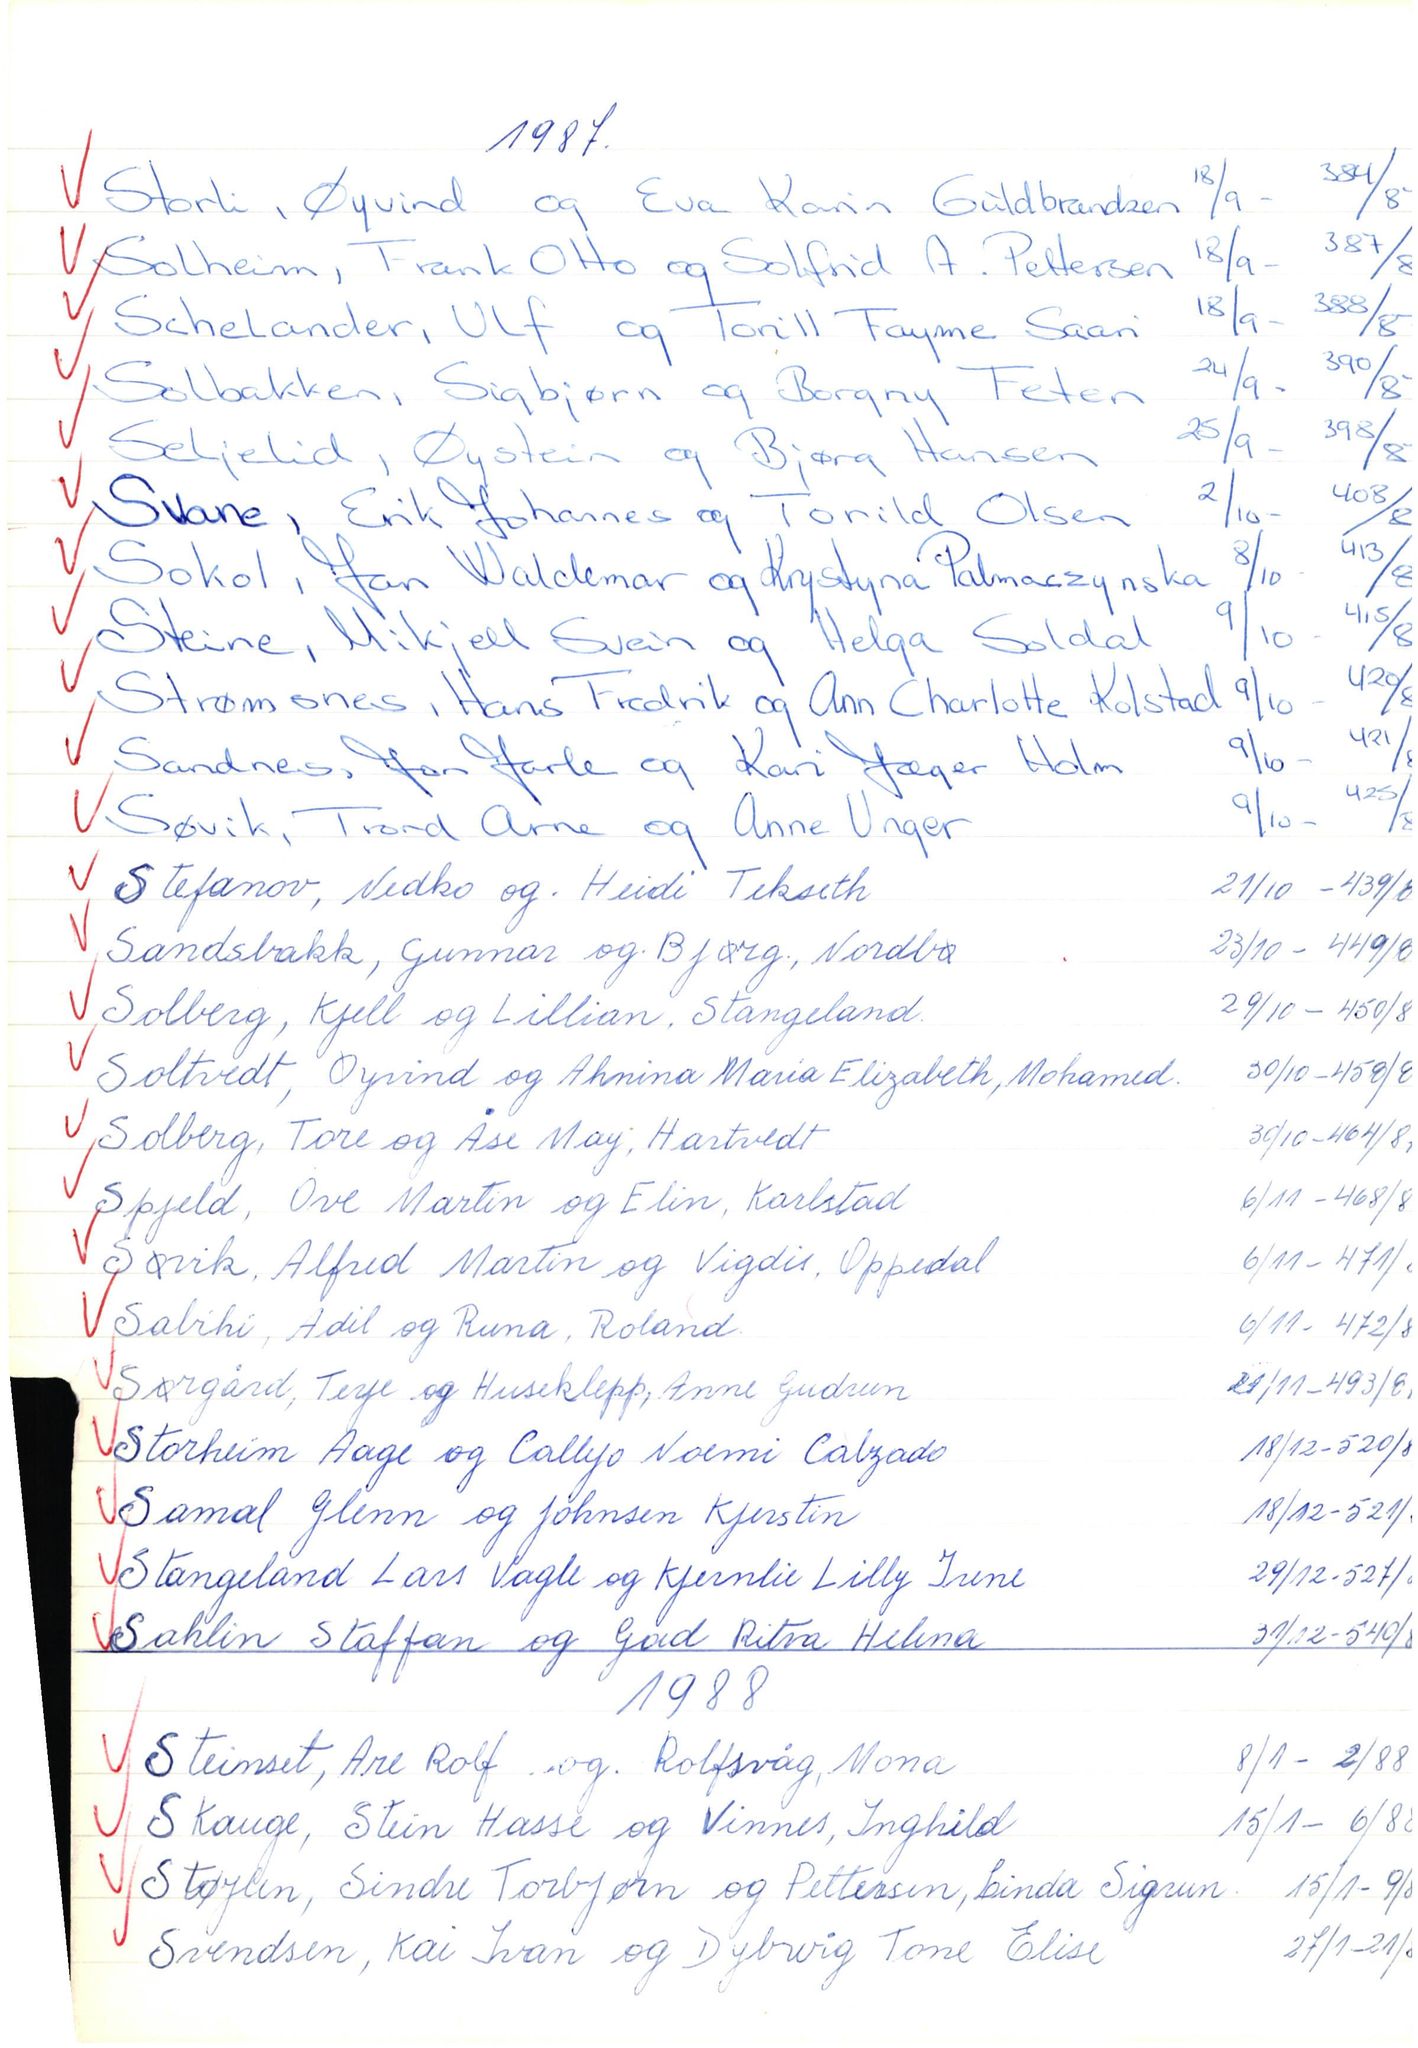 1987.
Storli, Øyvind og Eva Karin Guldbrandsen 18/9 - 384/8
Solheim, Frank Otto og Solfrid A. Pettersen 18/9 - 387/8
Schelander, Ulf og Torill Fayme Saari 18/9 - 388/8
Solbakken, Sigbjørn og Borgny Feten 24/9 - 390/8
Seljelid, Øystein og Bjørg Hansen 25/9 - 398/8
Svane, Erik Johannes og Torild Olsen 2/10 - 408/8
Sokol, Jan Waldemar og Krystyna Palmaczynska 8/10 - 413/8
Steine, Mikjell Svein og Helga Soldal 9/10 - 415/8
Strømsnes, Hans Fredrik og Ann Charlotte Kolstad 9/10 - 420/8
Sandnes, Jan Jarle og Kari Jæger Holm 9/10 - 421/8
Søvik, Trond Arne og Anne Unger 9/10 - 425/8
Stefanov, Nedko og. Heidi Tekseth 21/10 - 439/8
Sandsbakk, Gunnar og. Bjørg, Nordbø 23/10 - 449/8
Solberg, Kjell og Lillian, Stangeland. 29/10 - 450/8
Soltvedt, Øyvind og Ahnina Maria Elizabeth, Mohamed. 30/10 - 459/8
Solberg, Tore og Åse May, Hartvedt 30/10 - 464/8
Spjeld, Ove Martin og Elin, Karlstad 6/11 - 468/8
Søvik, Alfred Martin og Vigdis, Oppedal 6/11 - 471/
Sabihi, Adil og Runa, Roland. 6/11 - 472/8
Sørgård, Terje og Huseklepp, Anne Gudrun /11 - 493/8
Storheim Aage og Callejo Noemi Calzado 18/12 - 520/8
Samal Glenn og Johnsen Kjerstin 18/12 - 521/
Stangeland Lars Vagle og Kjernlie Lilly Irene 29/12 - 527/
Sahlin Staffan og Gad Ritva Helena 31/12 - 540/8
1988
Steinset, Are Rolf og. Rolfsvåg, Mona 8/1 - 2/88
Skauge, Stein Hasse og Vinnes, Inghild 15/1 - 6/88
Støylen, Sindre Torbjørn og Pettersen, Linda Sigrun. 15/1 - 9/8
Svendsen, Kai Ivan og Dybwig Tone Elise 27/1 - 21/8